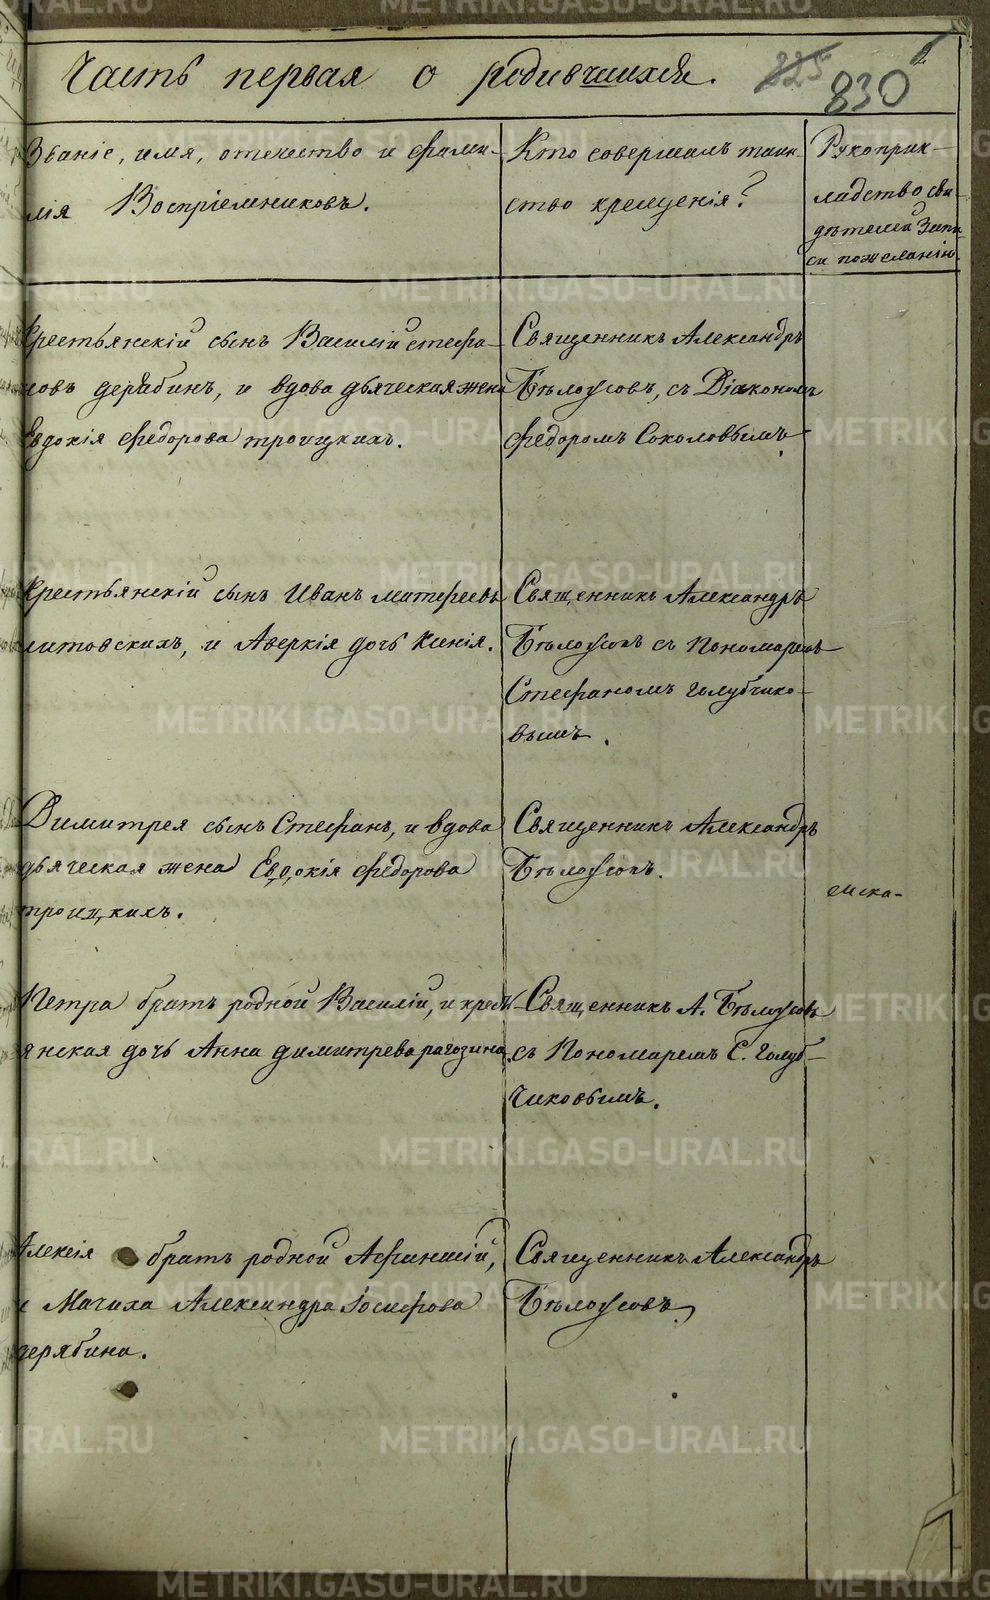 Часть первая о родившихся.
225
830
Званіе, имя, отечество и фами-
лія Воспріемниковъ.
Кто совершалъ таин-
ство крещенія?
Рукоприк-
ладство сви-
дѣтелей запи
си по желанію
Крестьянскій сынъ Василій Стефа-
новъ Дерябинъ, и вдова дьяческая жена
Евдокія Федорова Троицкихъ.
Священникъ Александръ
Бѣлоусовъ, съ Діакономъ
Федоромъ Соколовымъ
Крестьянскій сынъ Иванъ Матфеевъ
Литовскихъ, и Аверкія дочь Ксенія.
Священникъ Александръ
Бѣлоусовъ съ Пономаремъ
Стефаномъ Голубчико-
вымъ.
Димитрея сынъ Стефанъ, и вдова
дьяческая жена Евдокія Федорова
Троицкихъ.
Священникъ Александръ
Бѣлоусовъ.
Петра братъ родной Василій, и кресть-
янская дочь Анна Димитрева Рагозина
Священникъ А. Бѣлоусовъ
съ Пономаремъ С. Голуб-
чиковымъ.
Алексія братъ родной Афанасій,
и Мачиха Александра Іосифова
Дерябина.
Священникъ Александръ
Бѣлоусовъ
METRIKI.GASO-URAL.RU